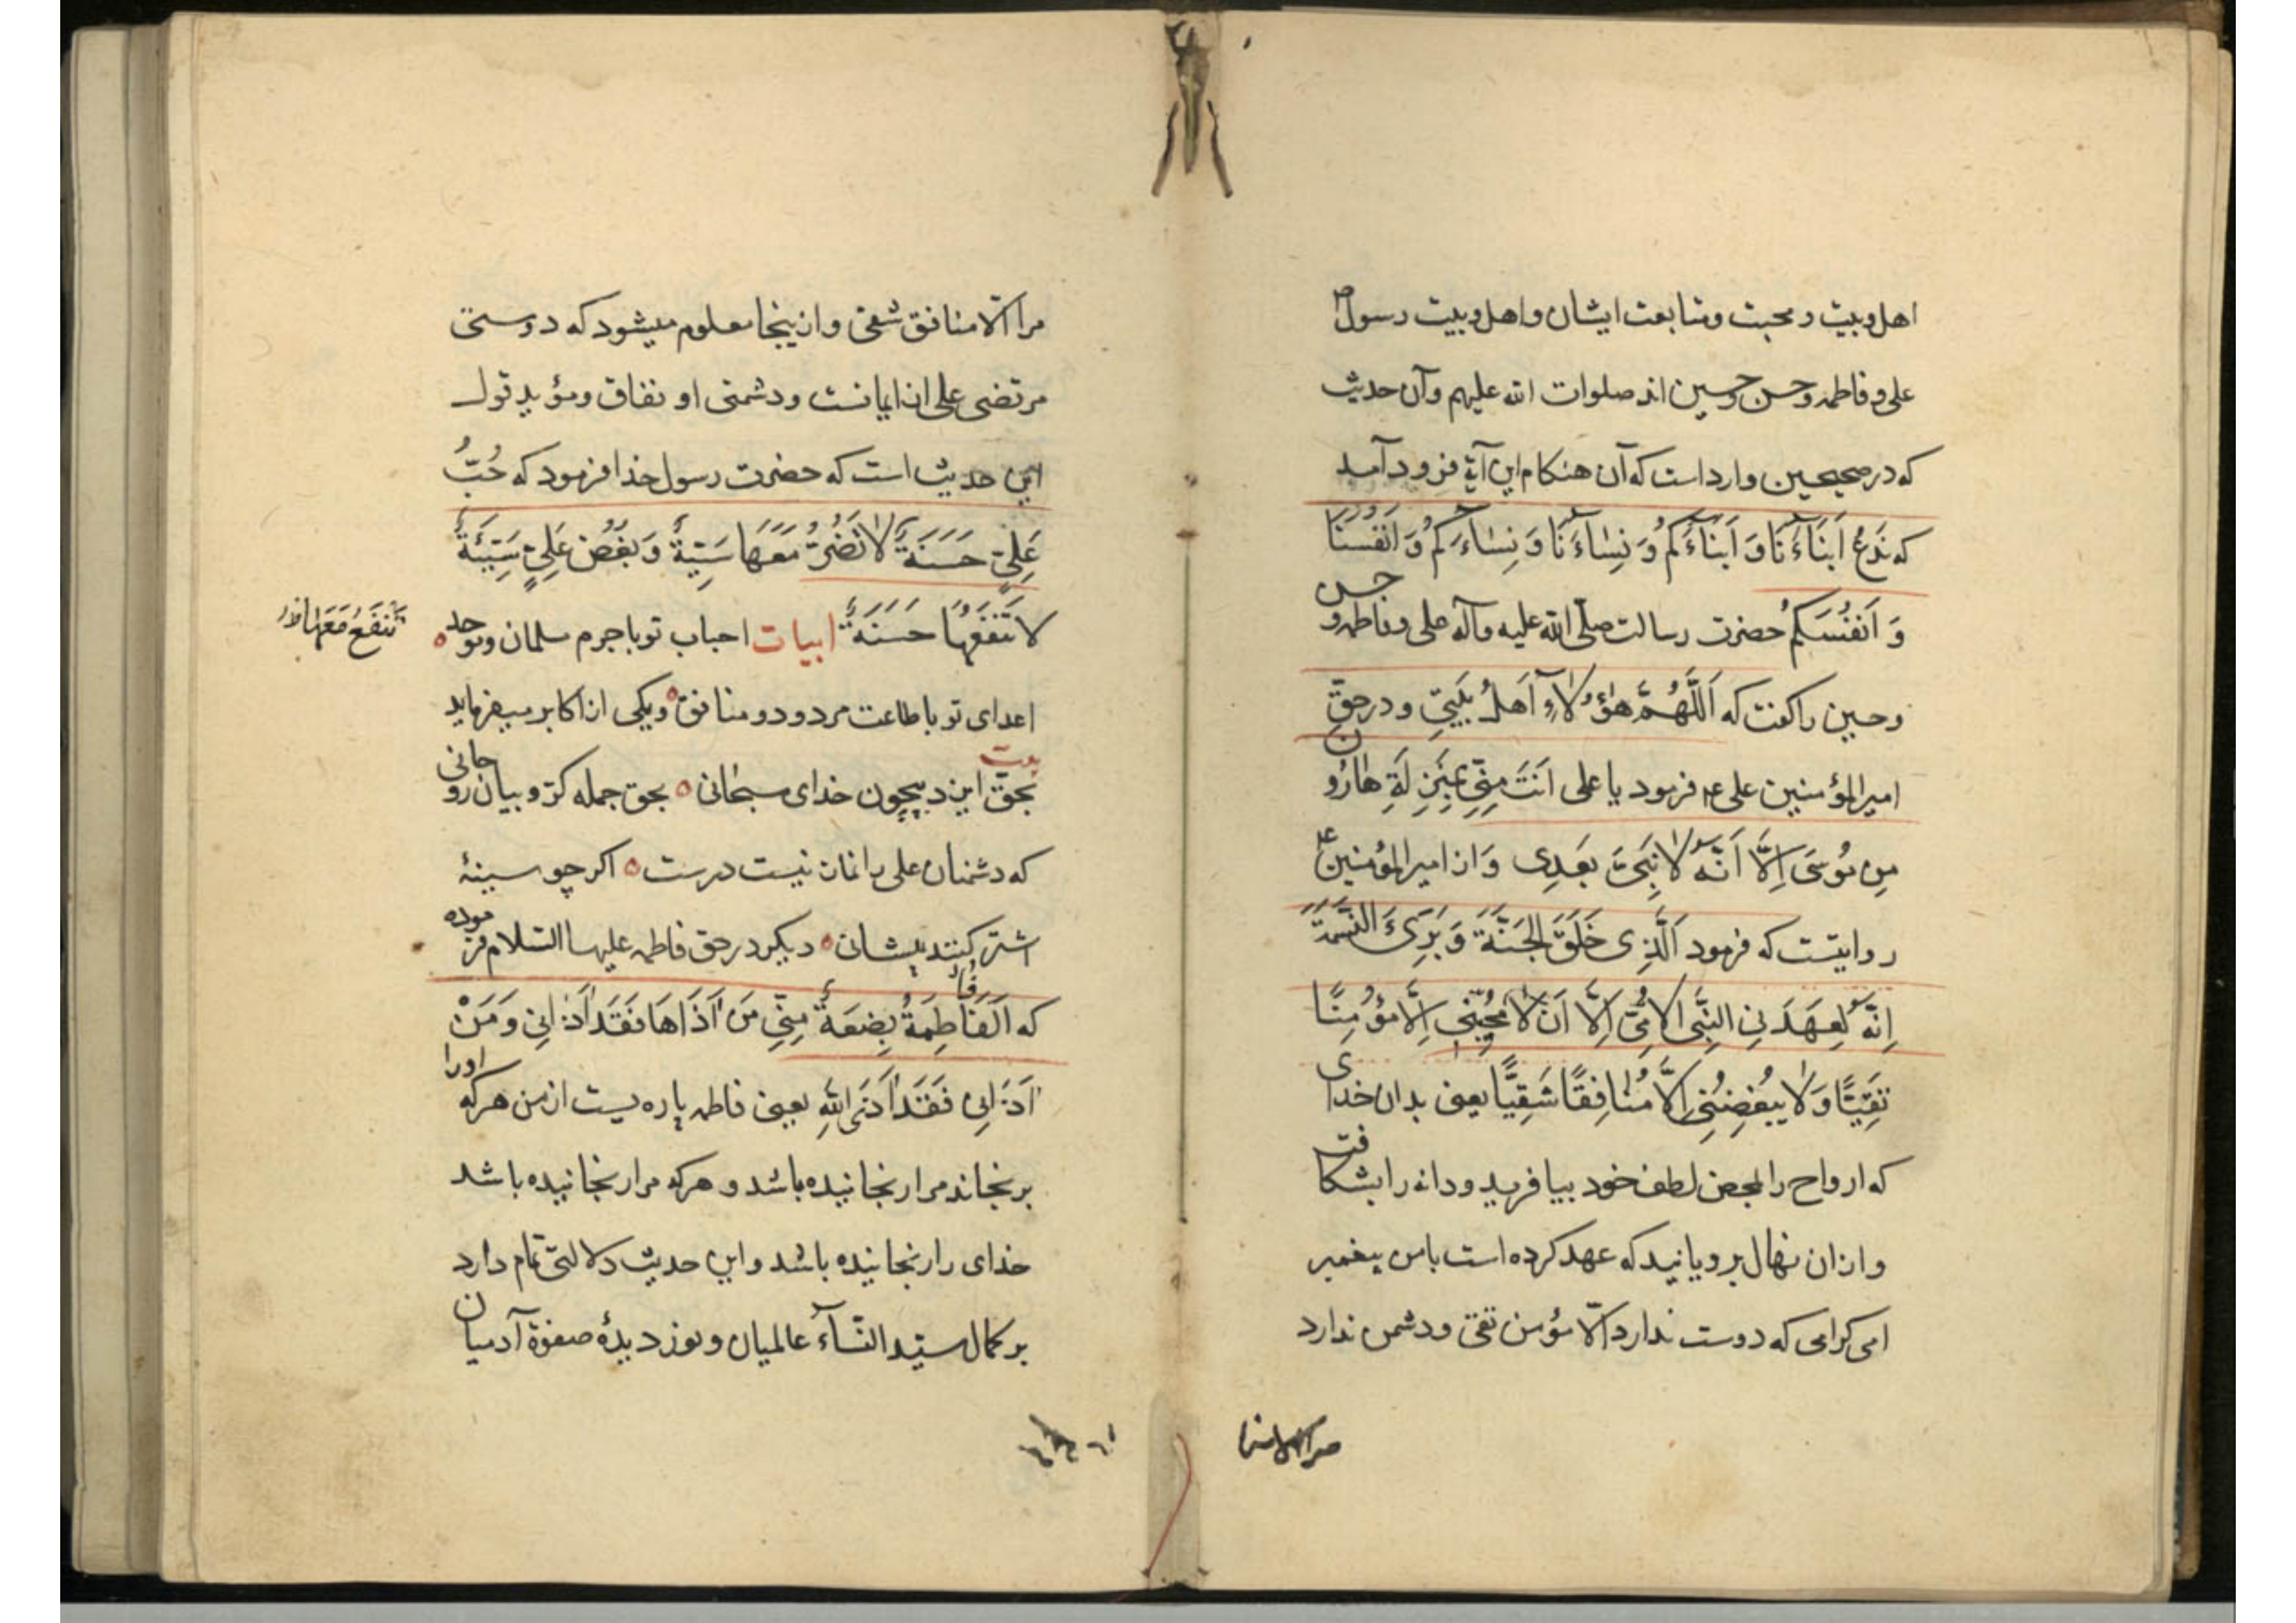 اهل وبیت و محبت و متابعت ایشان و اهل وبیت رسول ص
علی و فاطمه و حسن و حسین اند صلوات الله علیهم و آن حدیث
که در صحیحین وارد است که آن هنکام این آیة فرود آمد
که نَدعُ اَبنَاءَنَا وَ اَبنَاءَکُم وَ نِسَاءَنَا وَ نِسَاءَکُم وَ اَنفُسَنَا
وَ اَنفُسَکُم حضرت رسالت صلّی الله علیه وآله علی و فاطمه و حسن
و حسین را کفت که اَللَّهُمَّ هٰؤُلَاءِ اَهلُ بَیتِی و در حقّ
امیرالمؤمنین علی ع فرمود یا علی اَنتَ مِنِّی بِمَنزِلَةِ هَارُون
مِن مُوسَی اِلَّا اَنَّهُ لَا نَبِیَّ بَعدِی وَ از امیرالمؤمنین ع
روایتست که فرمود اَلَّذِی خَلَقَ الجَنَّةَ وَ بَرِیَٔ النَّسَمَةَ
اِنَّهُ لَعِهَدَنِی النَّبِی الاُمِّیُّ اِلَّا اَن لَا یُحِبُّنِی اِلَّا مُؤمِنًا
تَقِیًّا وَ لَا یُبغِضُنِی اِلَّا مُنَافِقًا شَقِیًّا یعنی بدان خدای
که ارواح را بمحض لطف خود بیافرید و دانه را بشکافت
و ازان نهال برویانید که عهد کرده است بامن پیغمبر
امی کرامی که دوست ندارد الّا مؤمن تقی و دشمن ندارد
مرا الّا منافق شقی و ازینجا معلوم میشود که دوستی
مرتضی علی از ایمانست و دشمنی او نفاق و مؤید قول
این حدیث است که حضرت رسول خدا فرمود که حُبُّ
عَلِیٍّ حَسَنَةٌ لَا تَضُرُّ مَعَهَا سَیِّئَةٌ وَ بُغضُ عَلِیٍّ سَیِّئَةٌ
لَا تَنفَعُهَا حَسَنَةٌ ابیات احباب تو با جرم سلمان و موحد
تَنفَعُ مَعَهَا
اعدای تو با طاعت مردود و منافق و یکی از اکابر میفرماید
بیت
بحق ایزد بیچون خدای سبحانی بحق جمله کرّوبیان روحانی
که دشمنان علی را نماز نیست درست اکر چو سینهٔ
اشتر کنند پیشانی دیکر در حق فاطمه علیها السّلام فرموده
که اَلفَاطِمَةُ بِضعَةٌ مِنِّی مَن اَذَاهَا فَقَد اَذَانِی وَ مَنْ
اَذَانِی فَقَد اَذَی اللهِ یعنی فاطمه پاره یست از من هرکه اورا
برنجاند مرا رنجانیده باشد و هرکه مرا رنجانیده باشد
خدای را رنجانیده باشد و این حدیث دلالتی تمام دارد
بر کمال سیّد النّسآء عالمیان و نور دیدهٔ صفوة آدمیان